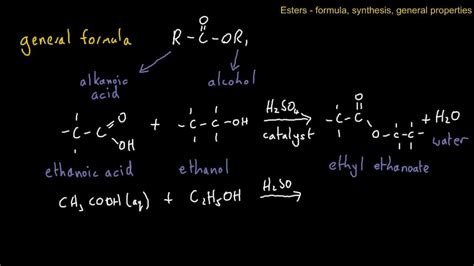 Esters - formula, synthesis, general properties
general formula
R - C - OR₁
O
alkanoic acid
alcohol
- C - C O OH + - C - C - OH H₂SO₄ catalyst → - C - C O O - C - C - + H₂O
water
ethanoic acid
ethanol
ethyl ethanoate
CH₃COOH(aq) + C₂H₅OH H₂SO →